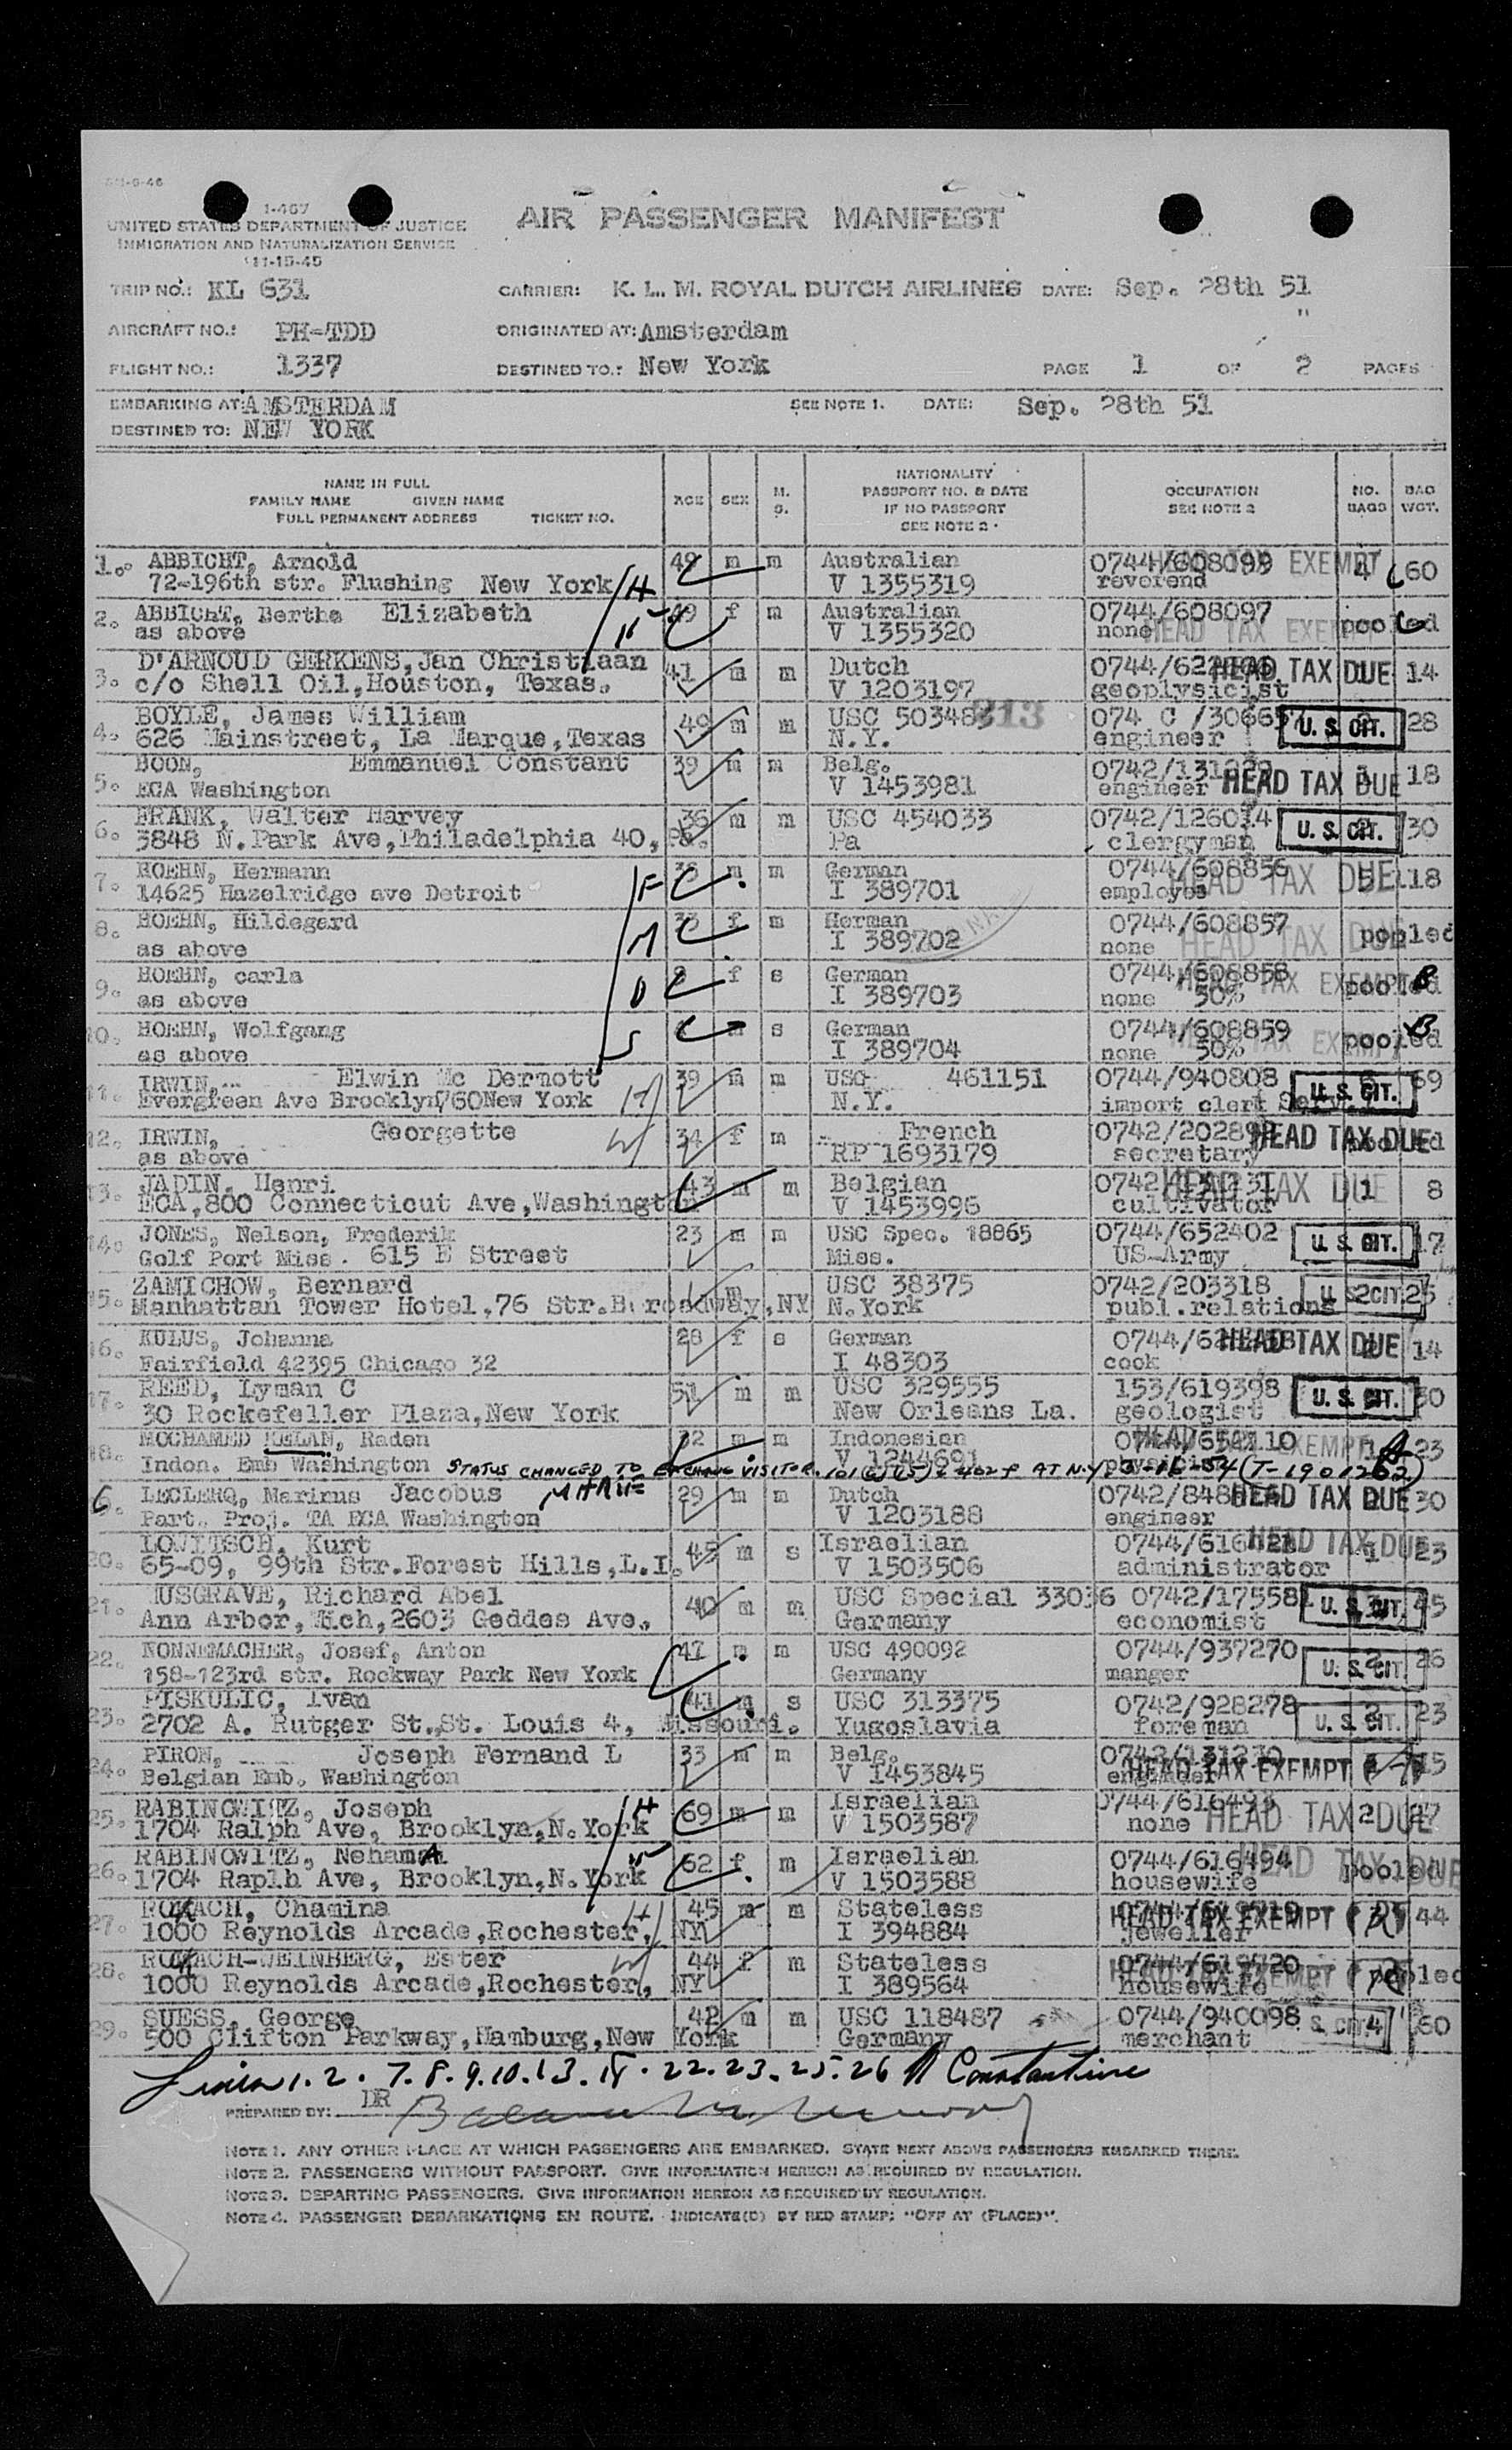 I-467
UNITED STATES DEPARTMENT OF JUSTICE
IMMIGRATION AND NATURALIZATION SERVICE
11-15-45
AIR PASSENGER MANIFEST
TRIP NO.: KL 631 CARRIER: K. L. M. ROYAL DUTCH AIRLINES DATE: Sep. 28th 51
AIRCRAFT NO.: PH-TDD ORIGINATED AT: Amsterdam "
FLIGHT NO.: 1337 DESTINED TO.: New York PAGE 1 OF 2 PAGES
EMBARKING AT: AMSTERDAM SEE NOTE 1. DATE: Sep. 28th 51
DESTINED TO: NEW YORK
NAME IN FULL
FAMILY NAME GIVEN NAME
FULL PERMANENT ADDRESS TICKET NO.
AGE SEX M. S.
NATIONALITY
PASSPORT NO. & DATE
IF NO PASSPORT
SEE NOTE 2
OCCUPATION
SEE NOTE 2
NO. BAGS BAG WGT.
1. ABBICHT, Arnold m m Australian 0744/608099 HEAD TAX EXEMPT 4 60
72-196th str. Flushing New York H V 1355319 reverend
2. ABBICHT, Bertha Elizabeth 49 f m Australian 0744/608097 pooled
as above V 1355320 none HEAD TAX EXEMPT
3. D'ARNOUD GERKENS, Jan Christiaan 41 m m Dutch HEAD TAX DUE 14
c/o Shell Oil, Houston, Texas. V 1203197 geophysicist
4. BOYLE, James William 49 m m USC 50348 313 U. S. CIT. 28
626 Mainstreet, La Marque, Texas N.Y. engineer
5. BOON, Emmanuel Constant 39 m m Belg. HEAD TAX DUE 18
ECA Washington V 1453981 engineer
6. BRANK, Walter Harvey 36 m m USC 454033 0742/126034 U. S. CIT. 30
3848 N. Park Ave, Philadelphia 40, Pa. Pa clergyman
7. HOEHN, Hermann 38 m m German 0744/608856 HEAD TAX DUE 5 118
14625 Hazelridge ave Detroit F I 389701 employee
8. HOEHN, Hildegard 33 f m German 0744/608857 pooled
as above M I 389702 none HEAD TAX DUE
9. HOEHN, carla f s German 0744/608858 HEAD TAX EXEMPT pooled
as above D I 389703 none 50%
10. HOEHN, Wolfgang s German 0744/608859 pooled
as above S I 389704 none 50% HEAD TAX EXEMPT
11. IRWIN, Elwin Mc Dermott 39 m m USC 461151 0744/940808 U. S. CIT. 69
Evergreen Ave Brooklyn 760 New York H N.Y. import clerk
12. IRWIN, Georgette 34 f m French HEAD TAX DUE
as above W RP 1693179 secretary
13. JADIN, Henri 43 m m Belgian HEAD TAX DUE 1 8
ECA, 800 Connecticut Ave, Washington V 1453996 cultivator
14. JONES, Nelson, Frederik 23 m m USC Spec. 18865 0744/652402 U. S. CIT. 17
Golf Port Miss. 615 E Street Miss. US-Army
15. ZAMICHOW, Bernard m USC 38375 0742/203318 U. S. CIT. 2 25
Manhattan Tower Hotel, 76 Str. Broadway, NY N.York publ. relations
16. KULUS, Johanna 28 f s German HEAD TAX DUE 14
Fairfield 42395 Chicago 32 I 48303 cook
17. REED, Lyman C 51 m m USC 329555 153/619398 U. S. CIT. 30
30 Rockefeller Plaza, New York New Orleans La. geologist
18. MOCHAMED JOELAN, Raden 32 m m Indonesian HEAD TAX EXEMPT 23
Indon. Emb Washington V 1244691 physicist
STATUS CHANGED TO EXCHANGE VISITOR. AT N.Y. (T-1901262)
LECLERQ, Marinus Jacobus MARIE 29 m m Dutch HEAD TAX DUE 30
Part. Proj. TA ECA Washington V 1203188 engineer
20. LOWITSCH, Kurt 45 m s Israelian HEAD TAX DUE 1 23
65-09, 99th Str. Forest Hills, L.I. V 1503506 administrator
21. MUSGRAVE, Richard Abel 40 m m USC Special 33036 U. S. CIT. 45
Ann Arbor, Mich, 2603 Geddes Ave., Germany economist
22. NONNEMACHER, Josef, Anton 47 m m USC 490092 0744/937270 U. S. CIT. 26
158-123rd str. Rockway Park New York Germany manger
23. PISKULIC, Ivan 41 m s USC 313375 0742/928278 U. S. CIT. 2 23
2702 A. Rutger St., St. Louis 4, Missouri. Yugoslavia foreman
24. PIRON, Joseph Fernand L 33 m m Belg. HEAD TAX EXEMPT 15
Belgian Emb. Washington V 1453845 engineer
25. RABINOWITZ, Joseph 69 m m Israelian HEAD TAX DUE 2 27
1704 Ralph Ave, Brooklyn, N. York H V 1503587 none
26. RABINOWITZ, Nehama 62 f m Israelian 0744/616494 HEAD TAX DUE pooled
1704 Raplh Ave, Brooklyn, N. York W V 1503588 housewife
27. ROKACH, Chamina 45 m m Stateless HEAD TAX EXEMPT 44
1000 Reynolds Arcade, Rochester, NY H I 394884 jeweller
28. ROKACH-WEINBERG, Ester 44 f m Stateless HEAD TAX EXEMPT pooled
1000 Reynolds Arcade, Rochester, NY W I 389564 housewife
29. SUESS, George 42 m m USC 118487 0744/940098 U. S. CIT. 4 60
500 Clifton Parkway, Hamburg, New York Germany merchant
Lines 1. 2. 7. 8. 9. 10. 13. 18. 22. 23. 25. 26 A Constantine
PREPARED BY: DR
NOTE 1. ANY OTHER PLACE AT WHICH PASSENGERS ARE EMBARKED. STATE NEXT ABOVE PASSENGERS EMBARKED THERE.
NOTE 2. PASSENGERS WITHOUT PASSPORT. GIVE INFORMATION HEREON AS REQUIRED BY REGULATION.
NOTE 3. DEPARTING PASSENGERS. GIVE INFORMATION HEREON AS REQUIRED BY REGULATION.
NOTE 4. PASSENGER DEBARKATIONS EN ROUTE. INDICATE(D) BY RED STAMP: "OFF AT (PLACE)".